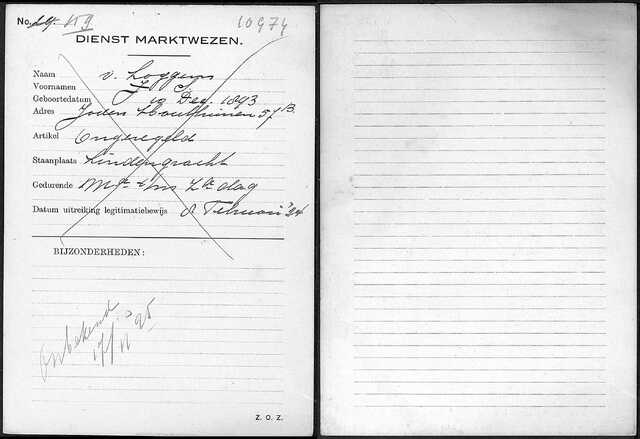 No. 24. VI 9 10974
DIENST MARKTWEZEN.
Naam v. Loggem
Voornamen J.
Geboortedatum 10 Dec. 1893
Adres Joden Houttuinen 57 B.
Artikel Ongeregeld
Staanplaats Lindengracht
Gedurende M. en Z. dag
Datum uitreiking legitimatiebewijs 8 Februari '24
BIJZONDERHEDEN:
Onbekend
17/11 25
Z. O. Z.